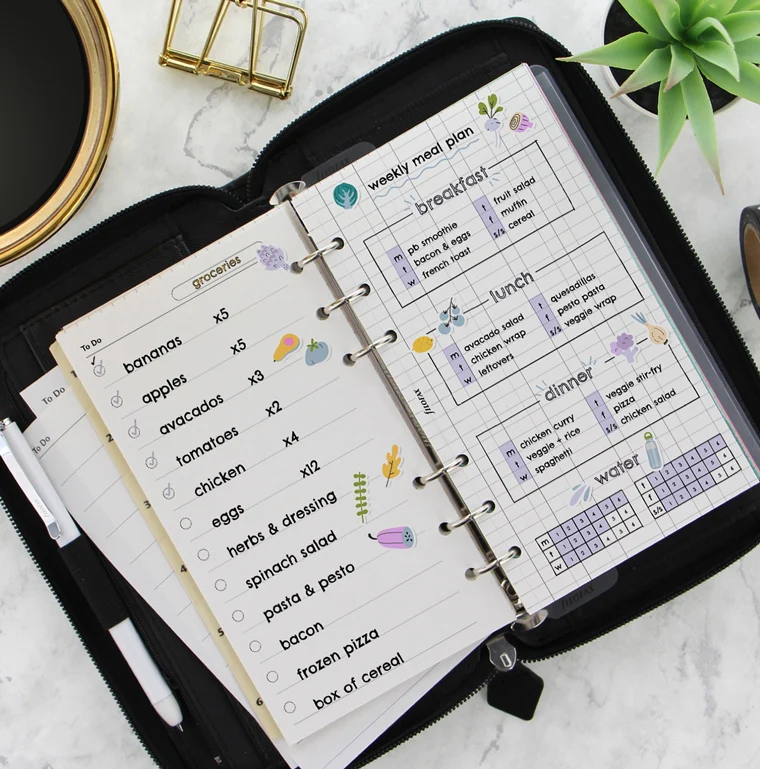 groceries
To Do
bananas x5
apples x5
avacados x3
tomatoes x2
chicken x4
eggs x12
herbs & dressing
spinach salad
pasta & pesto
bacon
frozen pizza
box of cereal
To Do
To Do
2
3
4
5
6
weekly meal plan
breakfast
m pb smoothie
t bacon & eggs
w french toast
t fruit salad
f muffin
s/s cereal
lunch
m avocado salad
t chicken wrap
w leftovers
t quesadillas
f pesto pasta
s/s veggie wrap
dinner
m chicken curry
t veggie + rice
w spaghetti
t veggie stir-fry
f pizza
s/s chicken salad
water
m 1 2 3 4 5 6
t 1 2 3 4 5 6
w 1 2 3 4 5 6
t 1 2 3 4 5 6
f 1 2 3 4 5 6
s/s 1 2 3 4 5 6